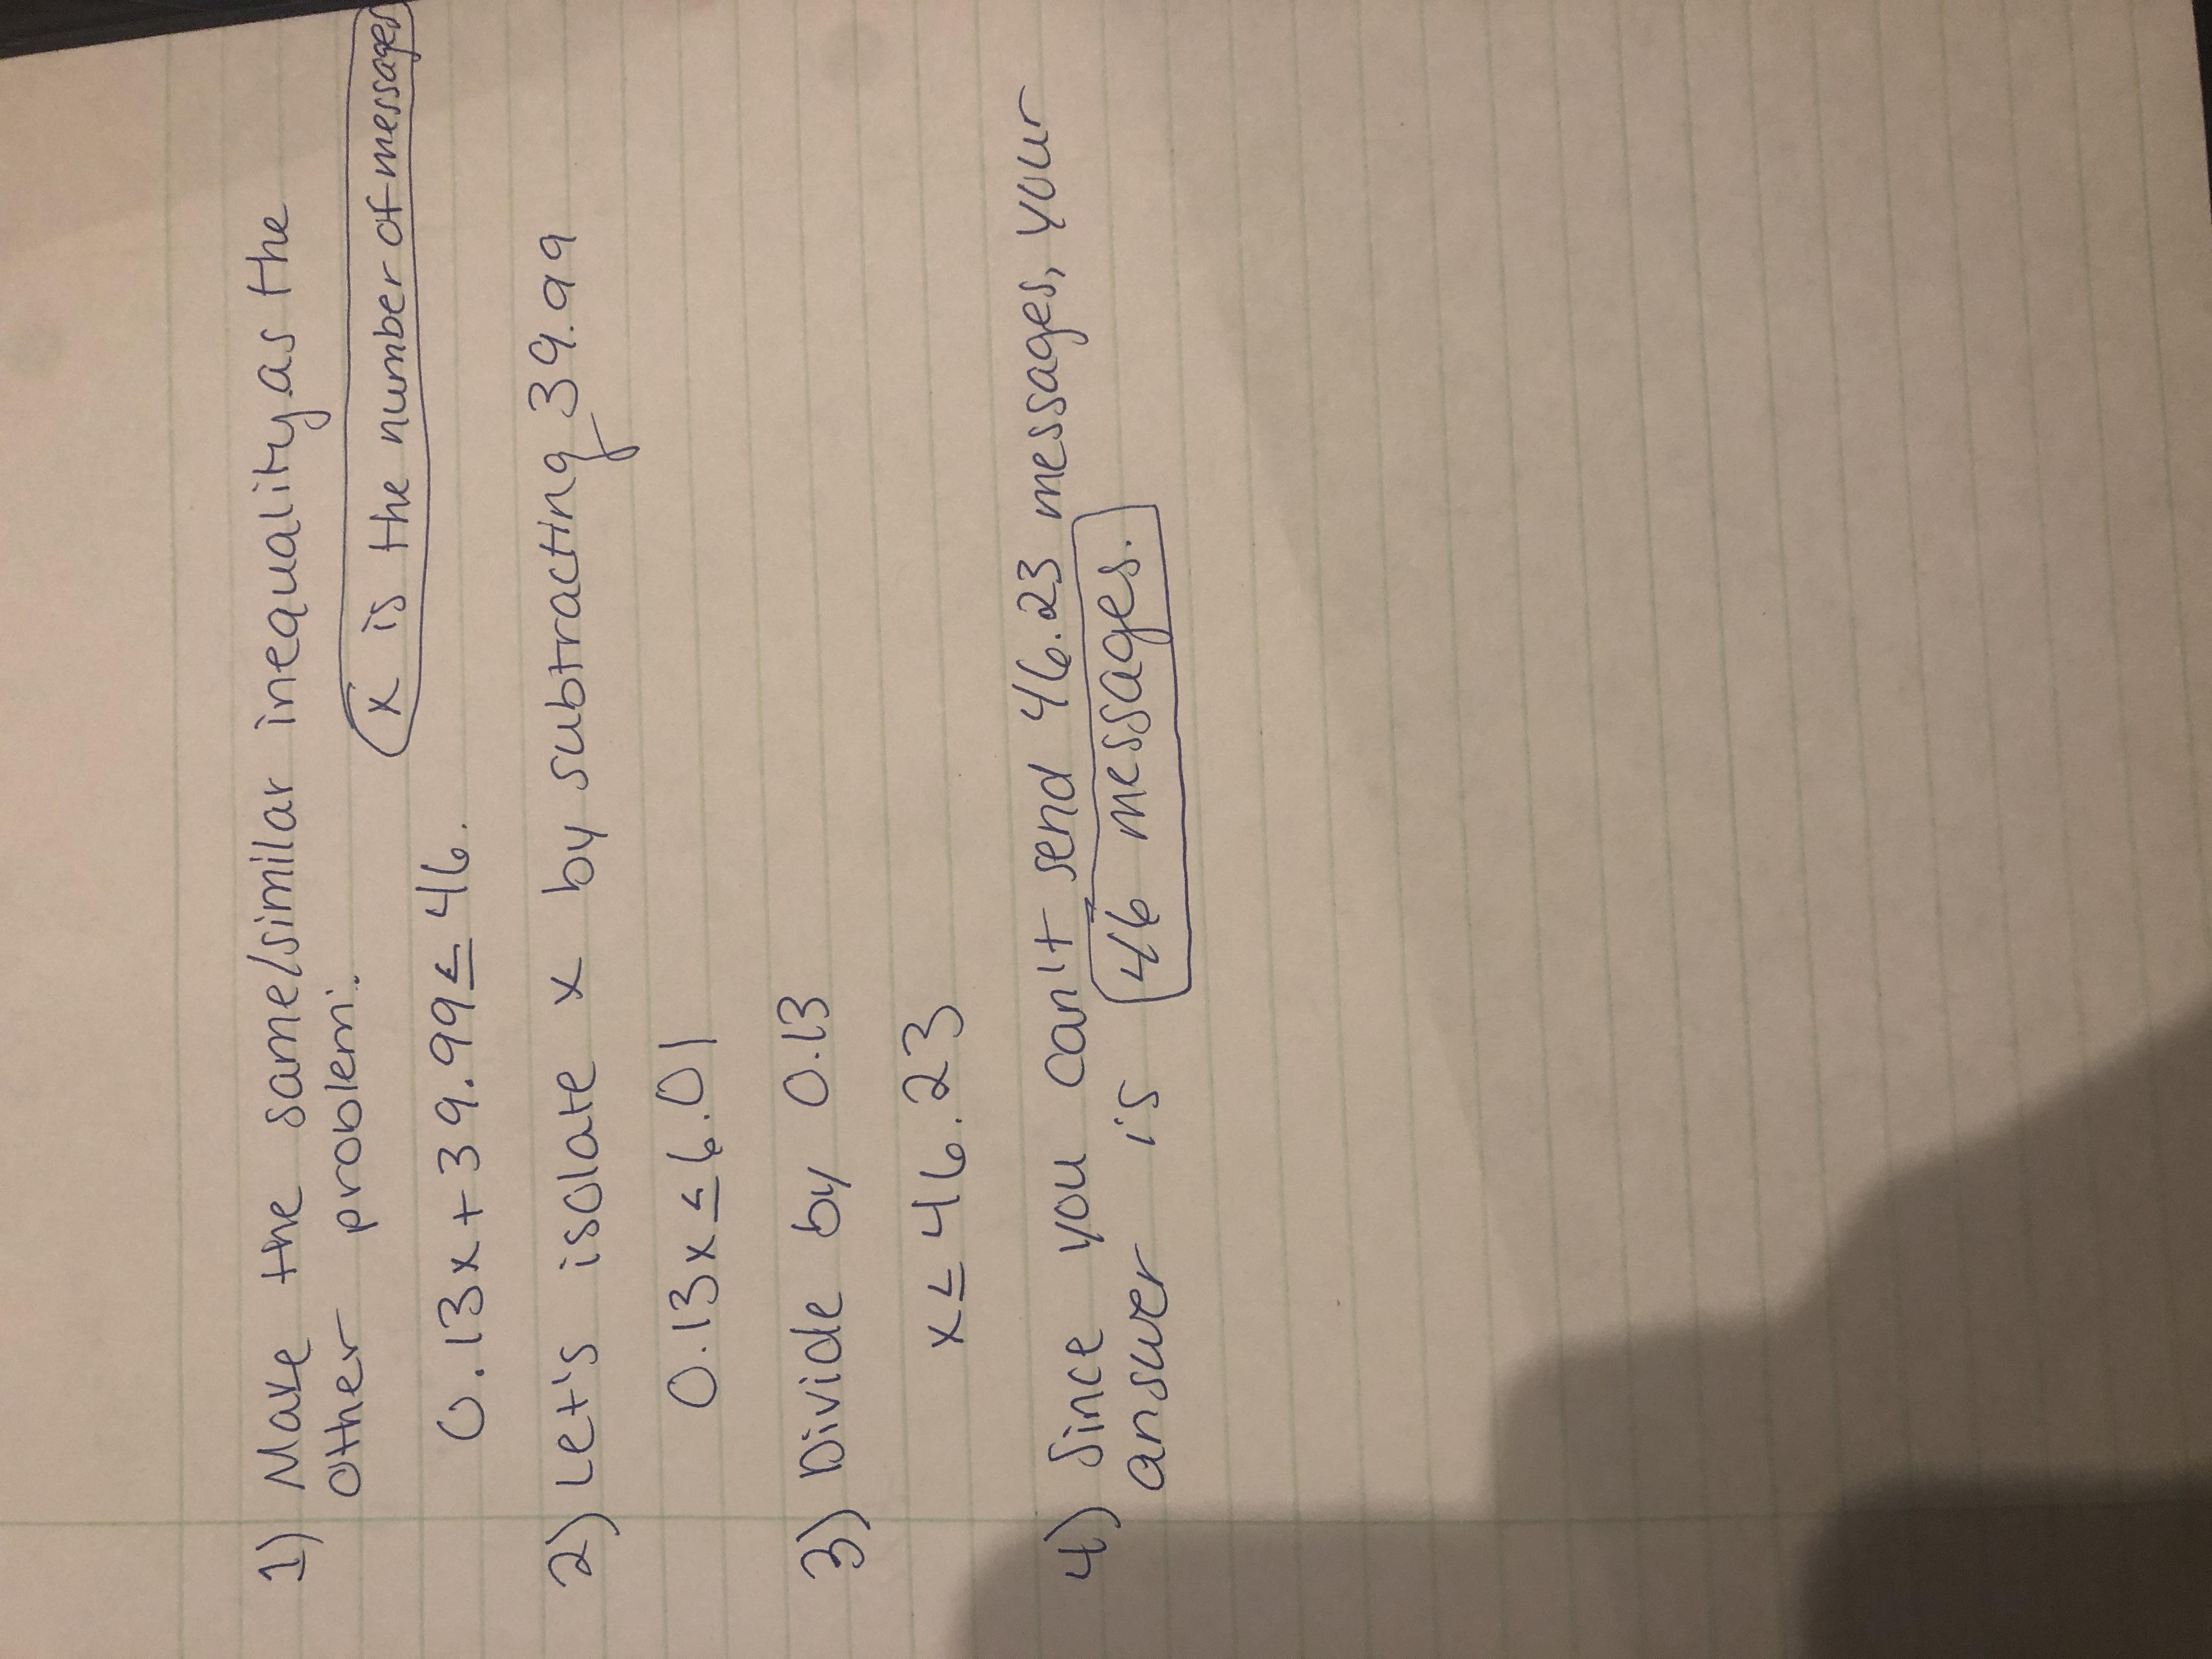 1) Make the same/similar inequality as the
other problem:
x is the number of messages
0.13x+39.99≤46.
2) Let's isolate x by subtracting 39.99
0.13x≤6.01
3) Divide by 0.13
x≤46.23
4) Since you can't send 46.23 messages, your
answer is 46 messages.